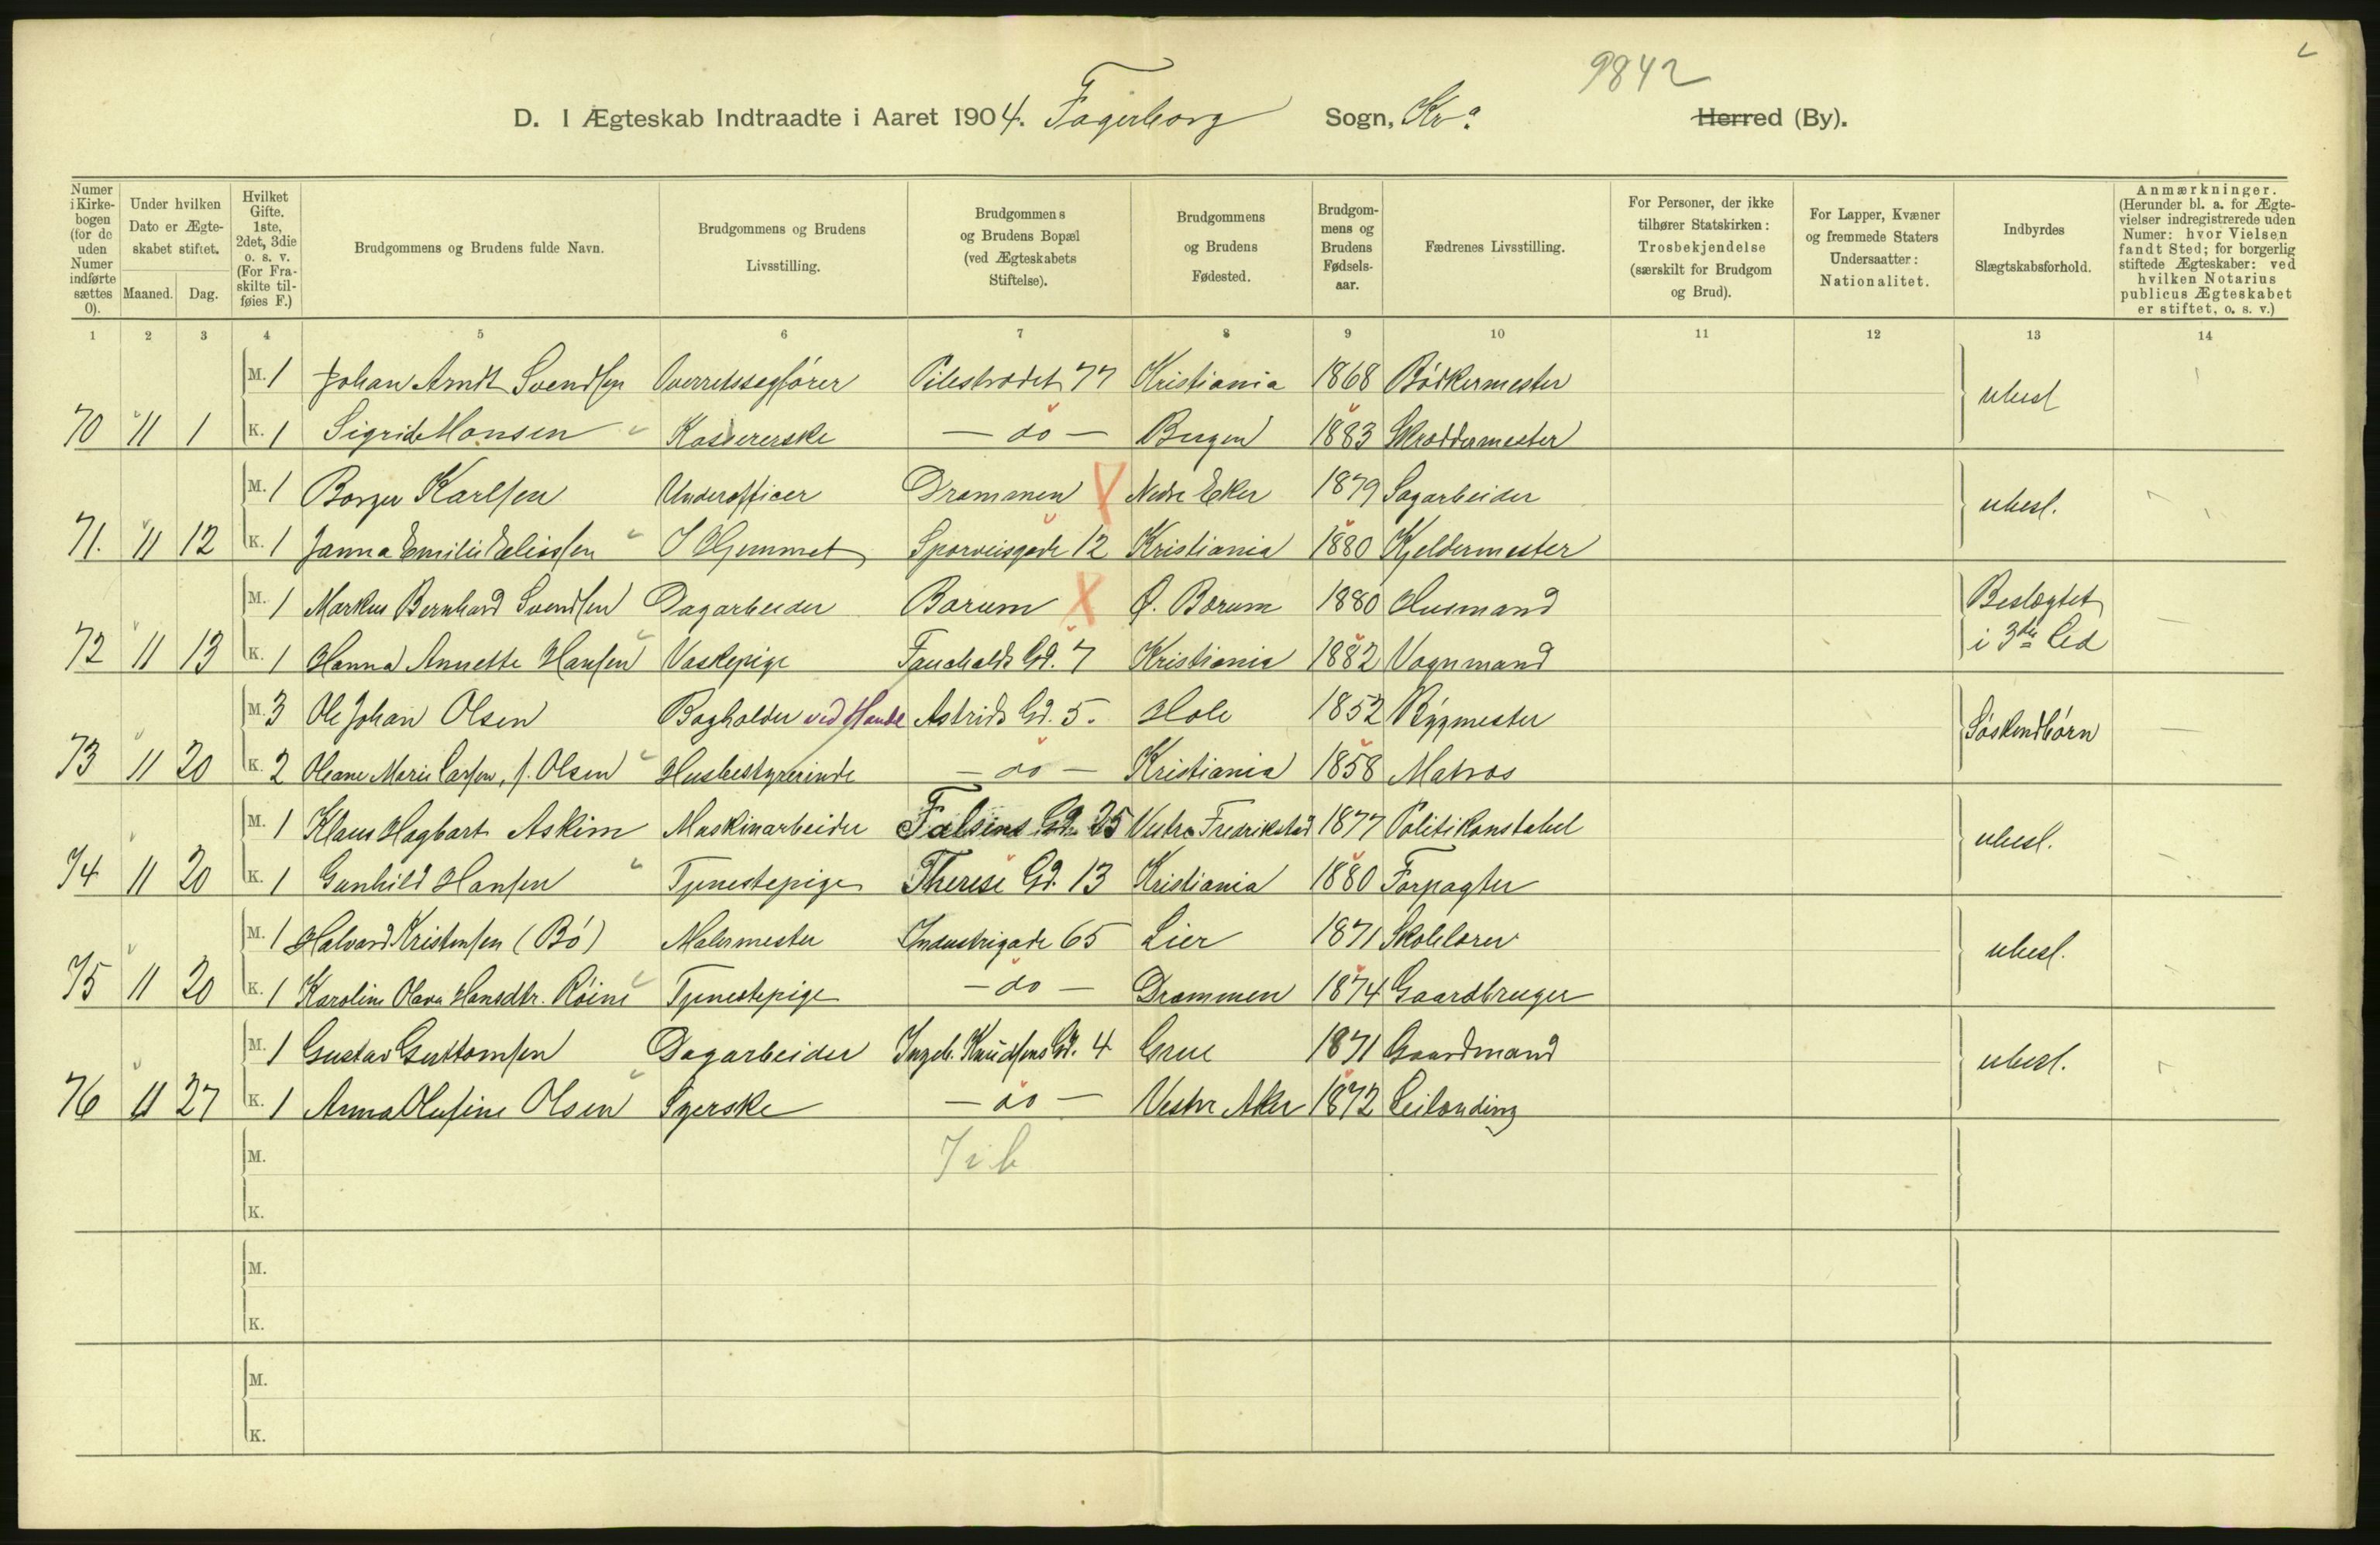 9842
D. I Ægteskab Indtraadte i Aaret 1904. Fagerborg Sogn, Kra Herred (By).
Numer i Kirkebogen (for de uden Numer indførte sættes 0).
Under hvilken Dato er Ægteskabet stiftet.
Maaned. Dag.
Hvilket Gifte. 1ste, 2det, 3die o. s. v. (For Fraskilte tilføies F.)
Brudgommens og Brudens fulde Navn.
Brudgommens og Brudens Livsstilling.
Brudgommens og Brudens Bopæl (ved Ægteskabets Stiftelse).
Brudgommens og Brudens Fødested.
Brudgommens og Brudens Fødselsaar.
Fædrenes Livsstilling.
For Personer, der ikke tilhører Statskirken: Trosbekjendelse (særskilt for Brudgom og Brud).
For Lapper, Kvæner og fremmede Staters Undersaatter: Nationalitet.
Indbyrdes Slægtskabsforhold.
Anmærkninger. (Herunder bl. a. for Ægtevielser indregistrerede uden Numer: hvor Vielsen fandt Sted; for borgerlig stiftede Ægteskaber: ved hvilken Notarius publicus Ægteskabet er stiftet, o. s. v.)
1 2 3 4 5 6 7 8 9 10 11 12 13 14
M. 1 Johan Arndt Svendsen Overretssagfører Pilestrædet 77 Kristiania 1868 Bødkermester
ubesl
70 11 1 K. 1 Sigrid Monsen Kassererske — do — Bergen 1883 Skræddermester
M. 1 Borger Karlsen Underofficer Drammen Nedre Eker 1879 Sagarbeider
ubesl.
71. 11 12 K. 1 Janna Emilie Eliassen I Hjemmet Sporveisgade 12 Kristiania 1880 Kjeldermester
M. 1 Markus Bernhard Svendsen Dagarbeider Bærum Ø. Bærum 1880 Husmand
Beslægtet
72 11 13 K. 1 Hanna Annette Hansen Vaskepige Fauchalds Gd. 7 Kristiania 1882 Vognmand
i 3die Led
M. 3 Ole Johan Olsen Bogholder ved Handel Astrids Gd. 5. Hole 1852 Bygmester
Søskendbørn
73 11 20 K. 2 Oleane Marie Larsen, f. Olsen Husbestyrerinde — do — Kristiania 1858 Matros
M. 1 Klaus Hagbart Askim Maskinarbeider Falsens Gd. 25 Vestre Fredrikstad 1877 Politikonstabel
ubesl.
74 11 20 K. 1 Gunhild Hansen Tjenestepige Therese Gd. 13 Kristiania 1880 Forpagter
M. 1 Halvard Kristensen (Bø) Malermester Industrigade 65 Lier 1871 Skolelærer
ubesl.
75 11 20 K. 1 Karoline Olava Hansdtr. Røine Tjenestepige — do — Drammen 1874 Gaardbruger
M. 1 Gustav Guttormsen Dagarbeider Ingeb. Knudsens Gd. 4 Grue 1871 Gaardmand
ubesl.
76 11 27 K. 1 Anna Olufine Olsen Syerske — do — Vestre Aker 1872 Leilænding
M.
K.
M.
K.
M.
K.